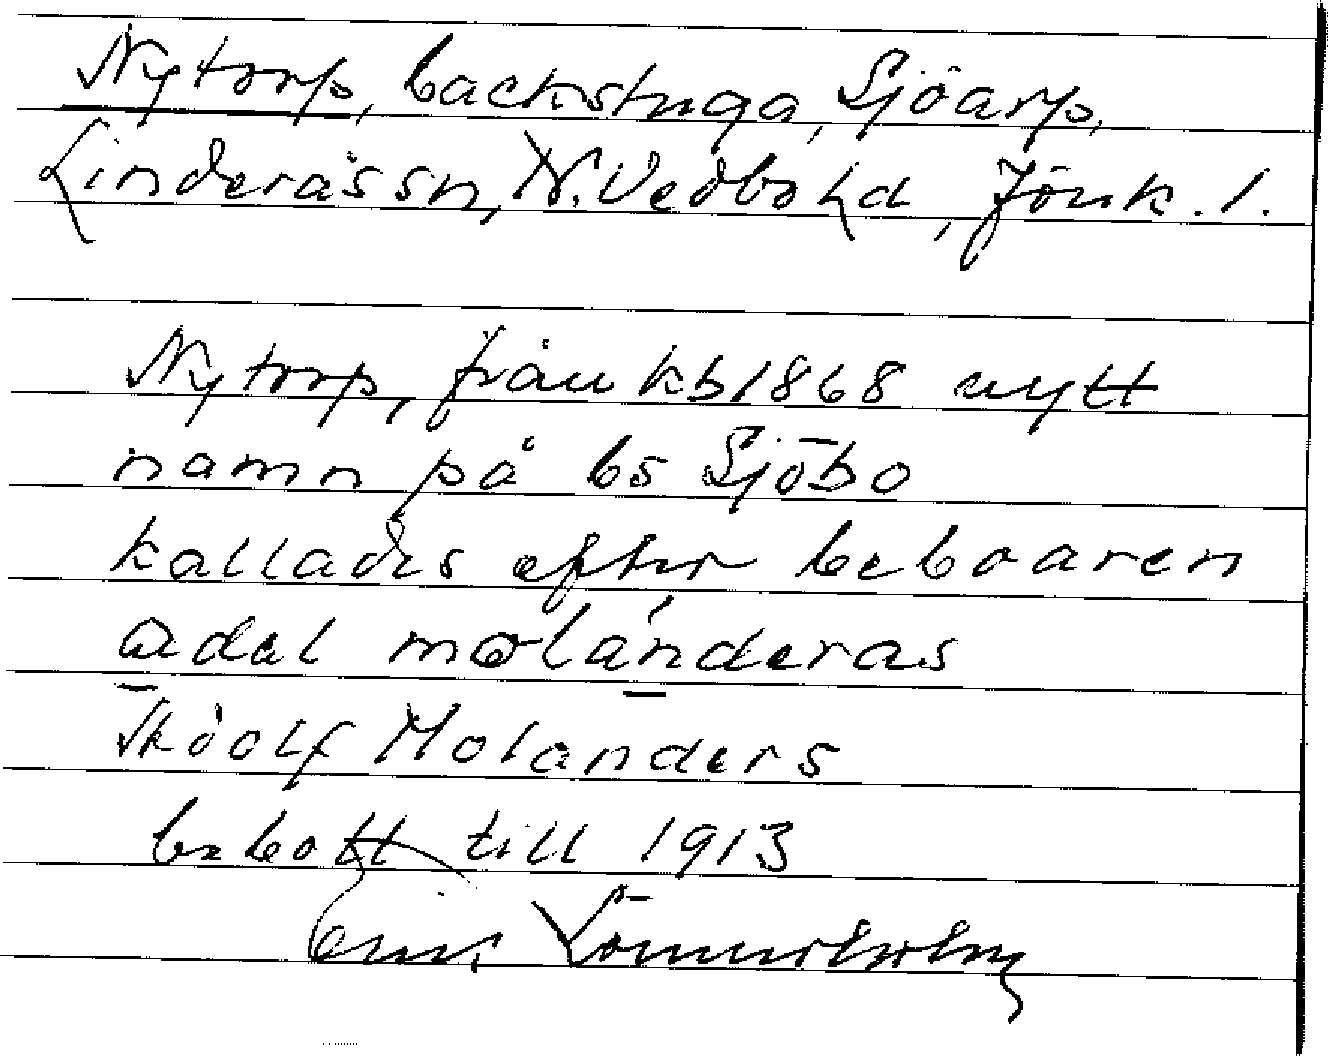 Nytorp, backstuga, Sjöarp,
Linderås sn, N. Vedbo hd, Jönk. l.
Nytorp, från kb 1868 nytt
namn på bs Sjöbo
kallades efter beboaren
adal molánderas
Molanders
bebott till 1913